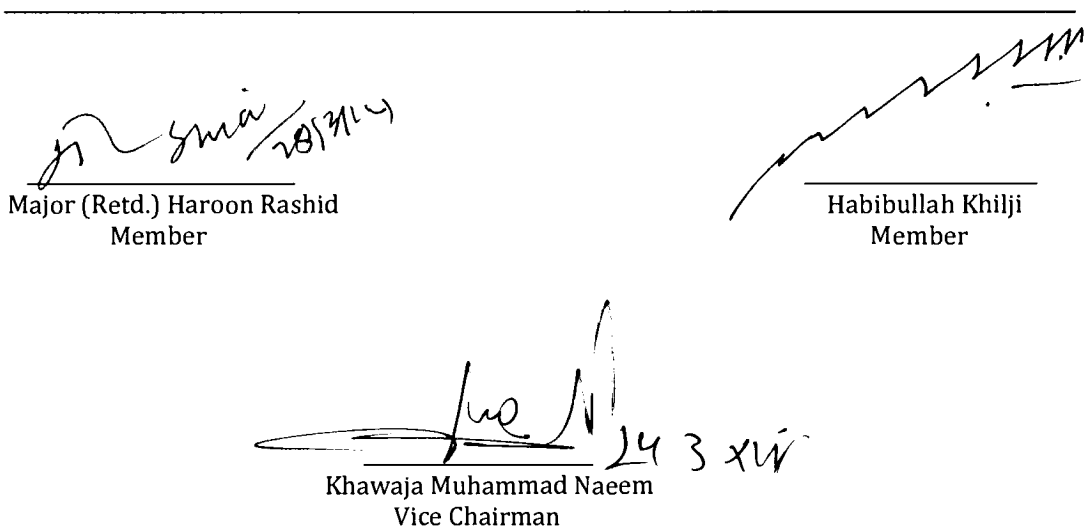 28/3/14
Major (Retd.) Haroon Rashid
Member
Habibullah Khilji
Member
24 3 xiv
Khawaja Muhammad Naeem
Vice Chairman